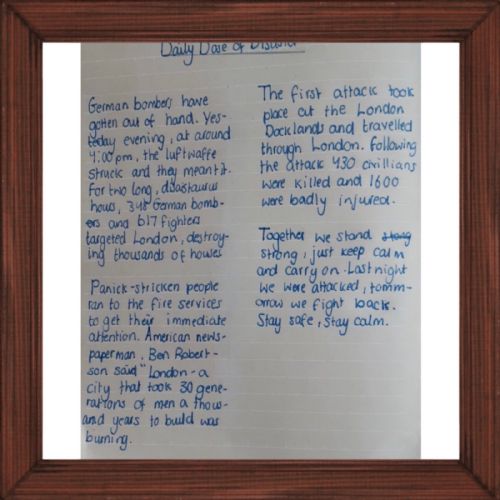 Daily Dose of Disaster
German bombers have
gotten out of hand. Yes-
teday evening, at around
4:00pm, the luftwaffe
struck and they meant it.
For two long, disastaurus
hours, 348 German bomb-
ers and 617 fighters
targeted London, destroy-
ing thousands of houses
Panick-stricken people
ran to the fire services
to get their immediate
attention. American news-
paperman, Ben Robert-
son said "London - a
city that took 30 gene-
rations of men a thous-
and years to build was
burning.
The first attack took
place at the London
Docklands and travelled
through London. Following
the attack 430 civillians
were killed and 1600
were badly injured.
Together we stand
strong, just keep calm
and carry on. Last night
we were attacked, tomm-
orrow we fight back.
Stay safe, Stay calm.